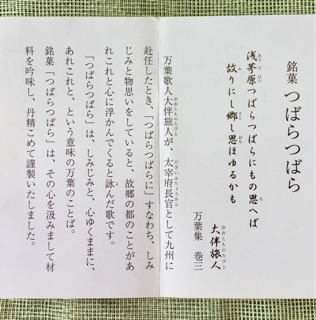 銘菓 つばらつばら
浅茅原つばらつばらにもの思へば
故りにし郷し思ほゆるかも
大伴旅人
万葉集 巻三
万葉歌人大伴旅人が、太宰府長官として九州に
赴任したとき、「つばらつばらに」すなわち、しみ
じみと物思いをしていると、故郷の都のことがあ
れこれと心に浮かんでくると詠んだ歌です。
「つばらつばら」は、しみじみと、心ゆくままに、
あれこれと、という意味の万葉のことば。
銘菓「つばらつばら」は、その心を汲みまして材
料を吟味し、丹精こめて謹製いたしました。